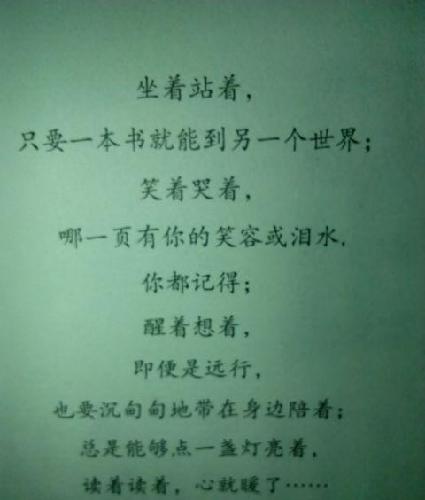 坐着站着，
只要一本书就能到另一个世界；
笑着哭着，
哪一页有你的笑容或泪水，
你都记得；
醒着想着，
即便是远行，
也要沉甸甸地带在身边陪着；
总是能够点一盏灯亮着，
读着读着，心就暖了……